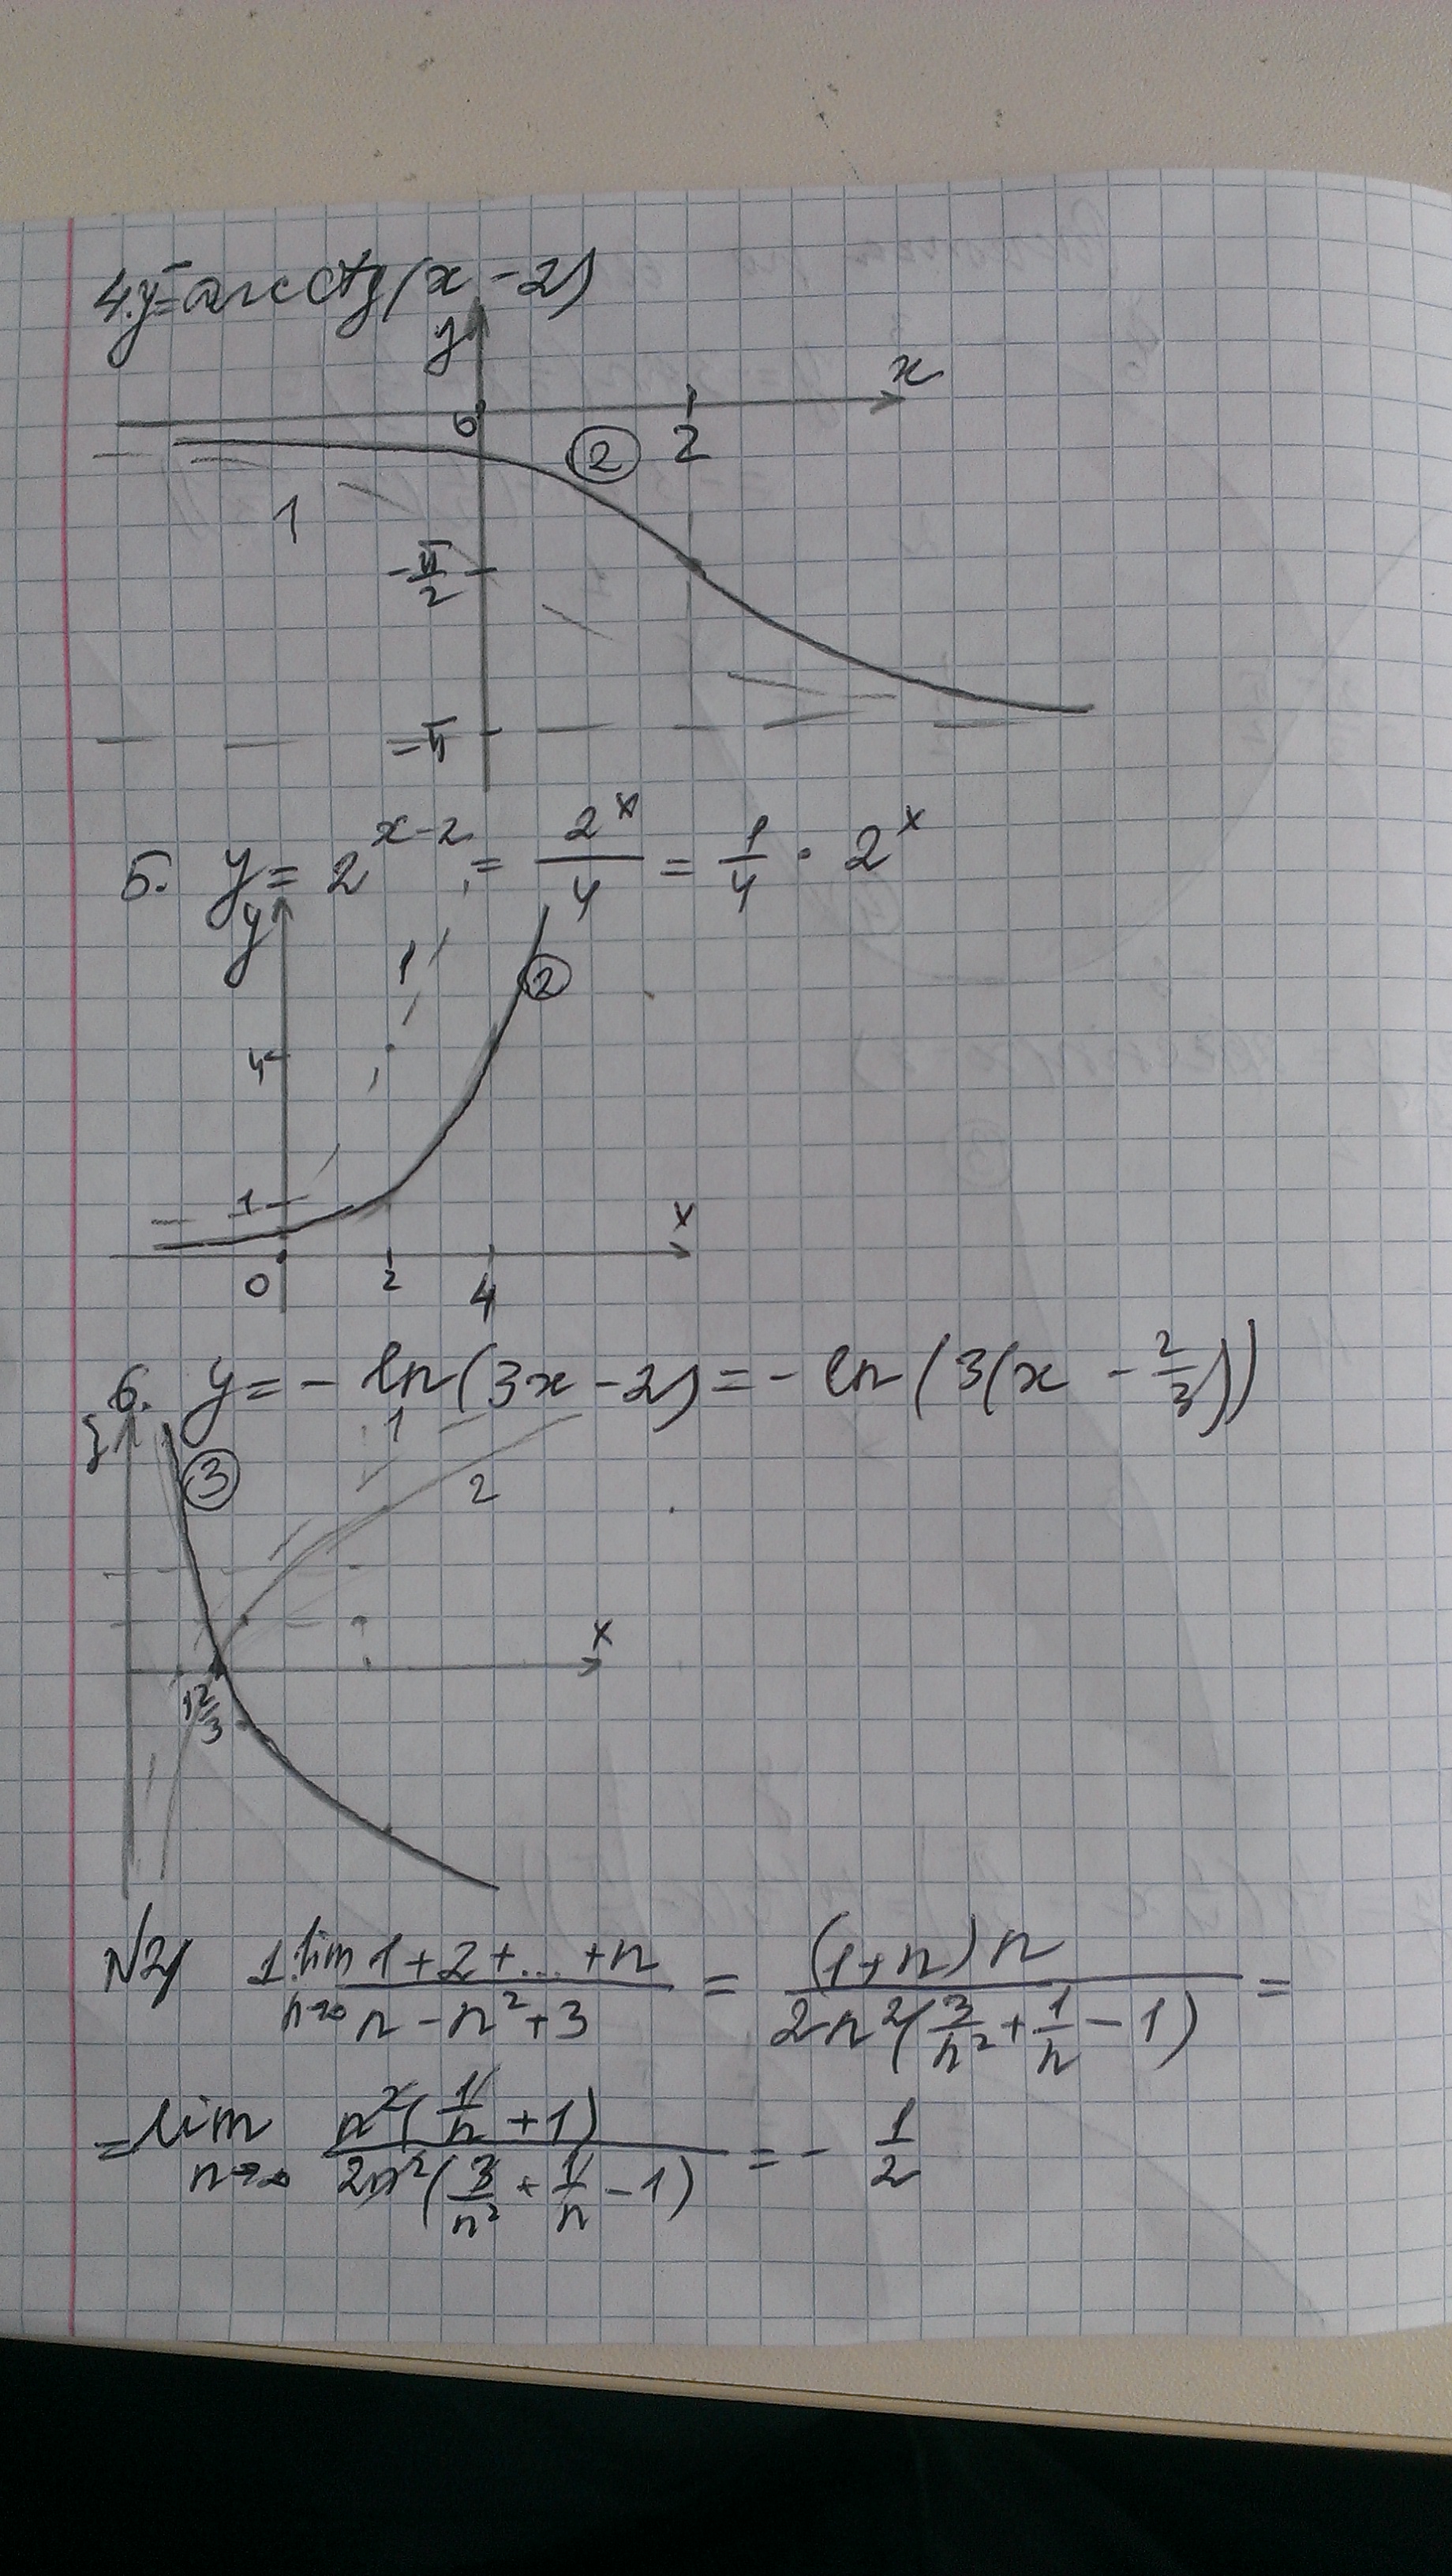 4. y = arcctg(x - 2)
y
x
0
2
②
1
-π/2
-π
5. y = 2^(x-2) = 2^x/4 = 1/4 · 2^x
y
1
②
4
1
x
0
2
4
6. y = - ln(3x - 2) = - ln(3(x - 2/3))
1
③
2
x
1 2/3
N2 1. lim n→∞ (1+2+...+n)/(n - n² + 3) = (1+n)n/(2n²(3/n² + 1/n - 1)) =
= lim n→∞ n²(1/n + 1)/(2n²(3/n² + 1/n - 1)) = - 1/2